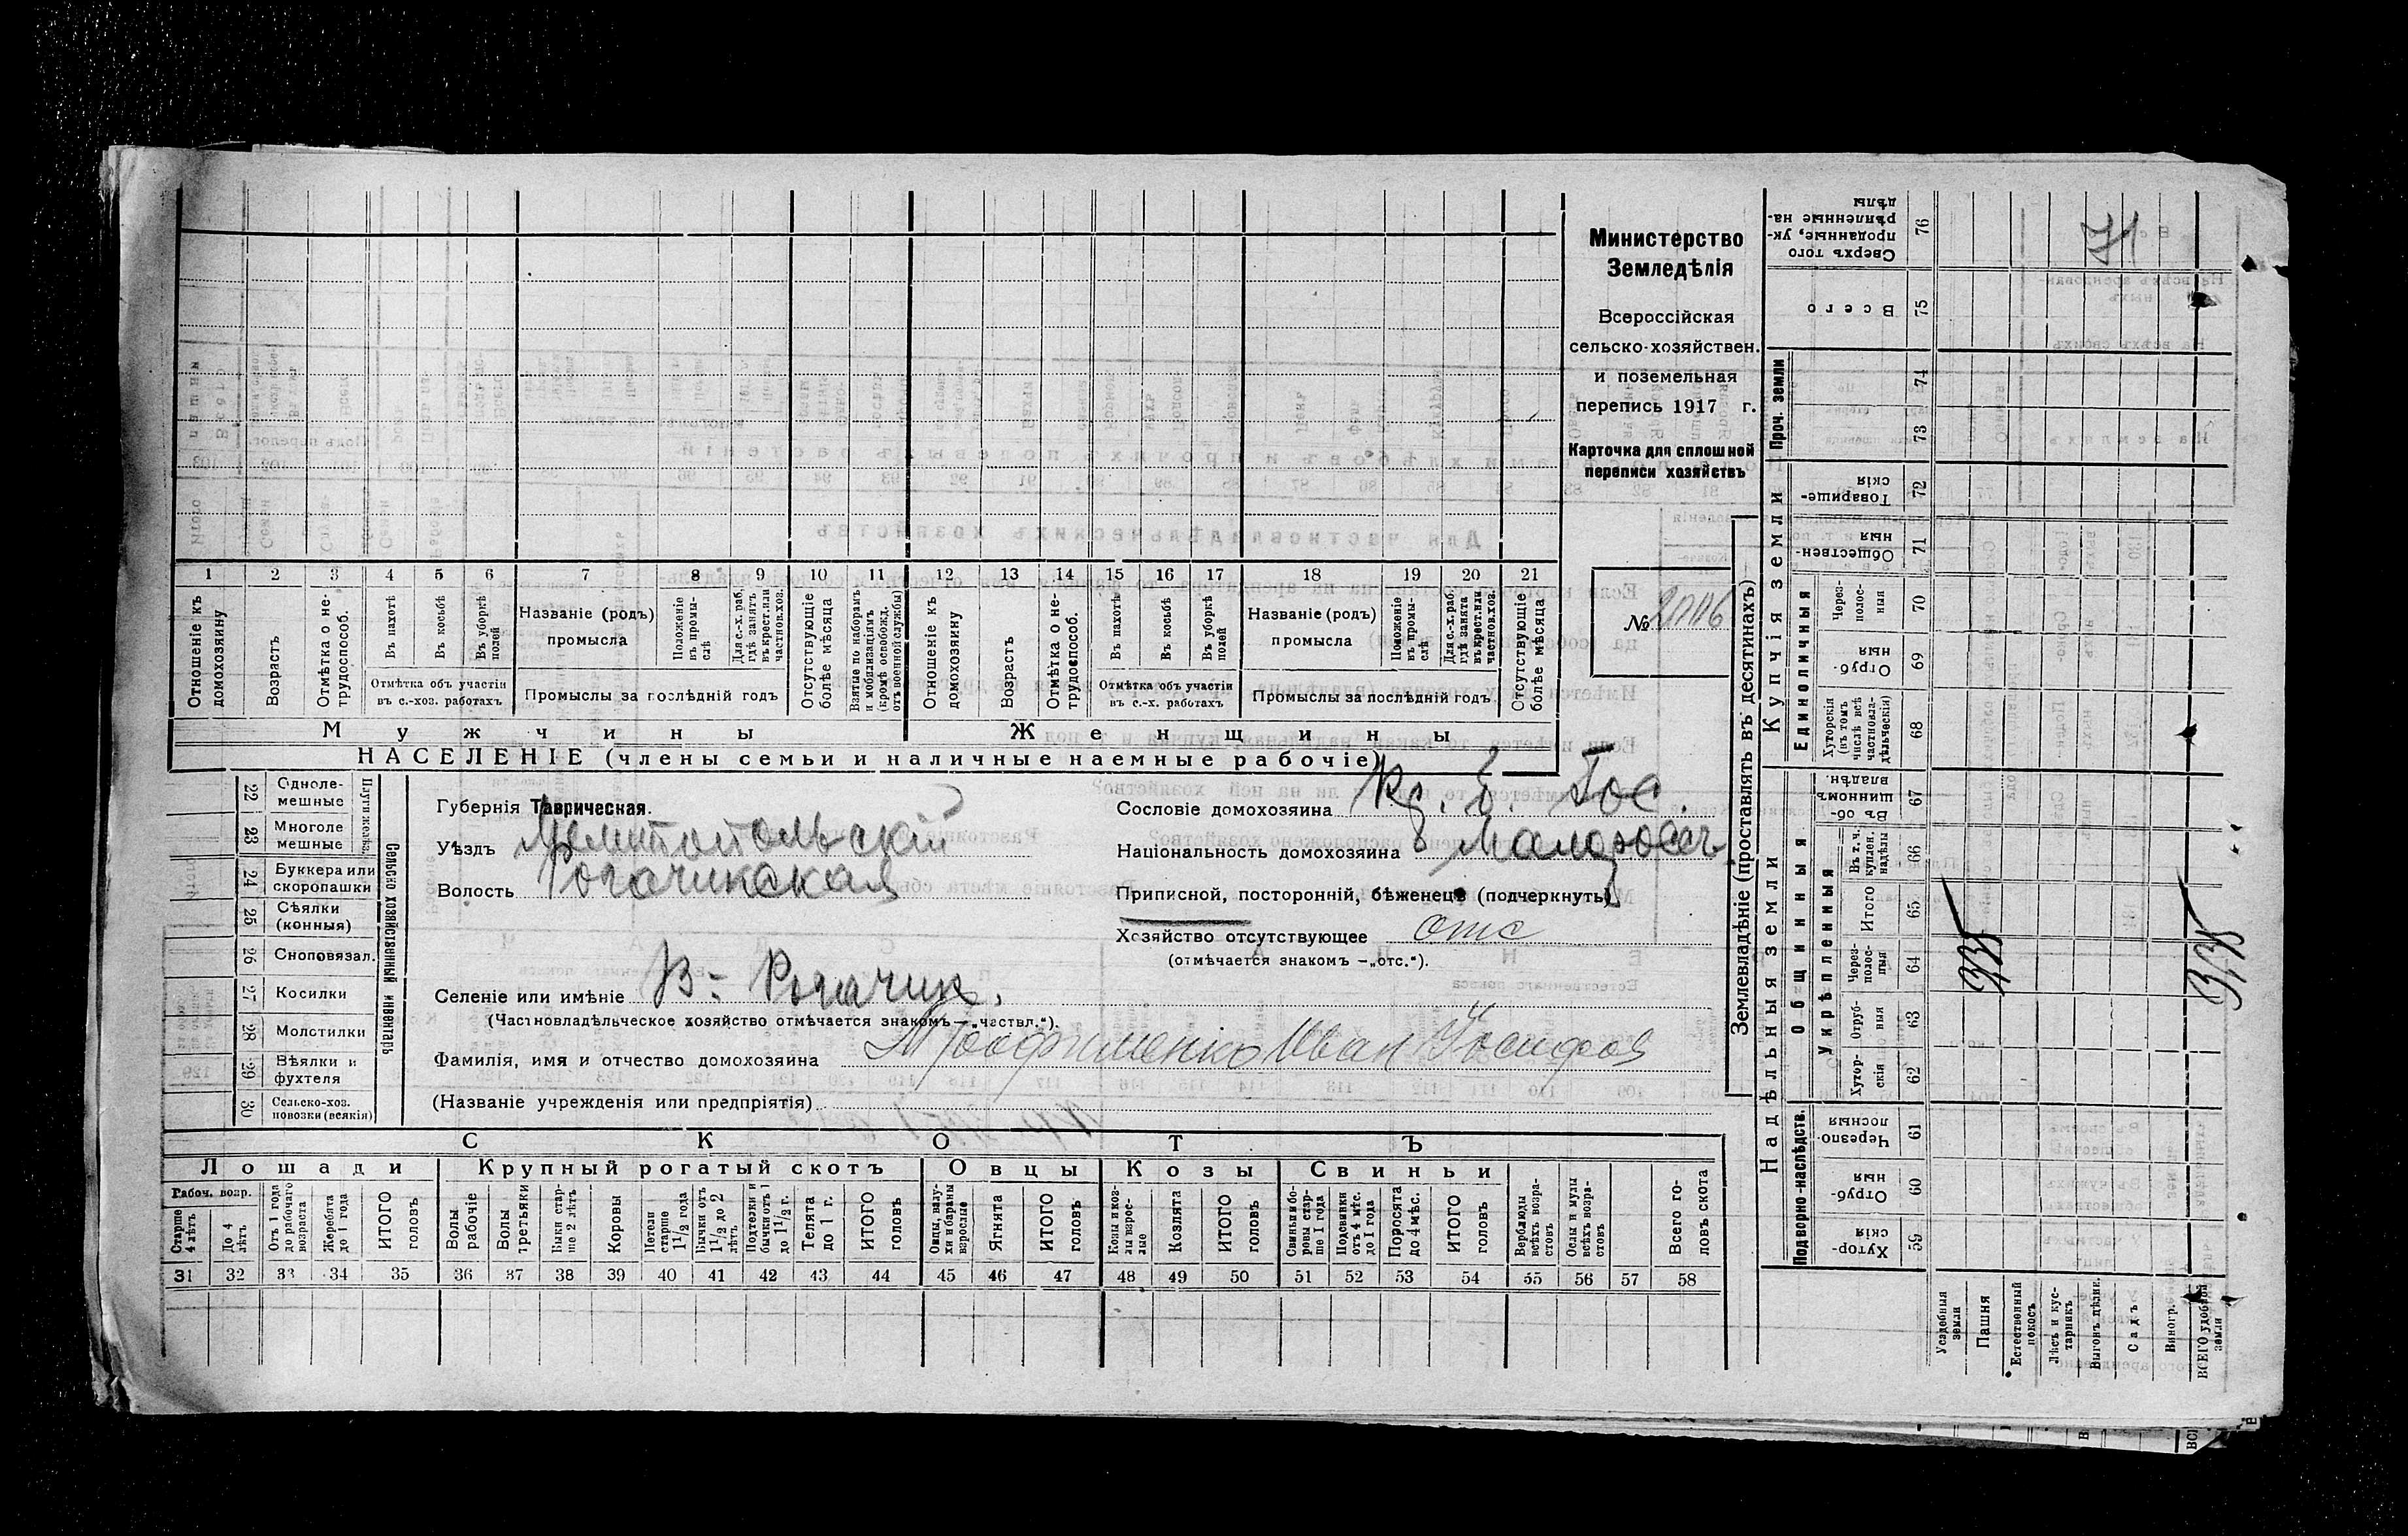 Министерство
Земледѣлія
Всероссійская
сельско-хозяйствен.
и поземельная
перепись 1917 г.
Карточка для сплошной
переписи хозяйствъ
№ 2006
1 2 3 4 5 6 7 8 9 10 11 12 13 14 15 16 17 18 19 20 21
Отношеніе къ домохозяину
Возрастъ
Отмѣтка о нетрудоспособ.
Въ пахотѣ
Въ косьбѣ
Въ уборкѣ полей
Отмѣтка объ участіи
въ с.-хоз. работахъ
Названіе (родъ)
промысла
Положеніе въ промыслѣ
Для с.-х. раб. гдѣ занятъ въ крест. или частн. хоз.
Промыслы за послѣдній годъ
Отсутствующіе болѣе мѣсяца
Взятые по наборамъ и мобилизаціямъ (кромѣ освобожд. отъ военной службы)
Отношеніе къ домохозяину
Возрастъ
Отмѣтка о нетрудоспособ.
Въ пахотѣ
Въ косьбѣ
Въ уборкѣ полей
Отмѣтка объ участіи
въ с.-х. работахъ
Названіе (родъ)
промысла
Положеніе въ промыслѣ
Для с.-х. раб. гдѣ занята въ крест. или частн. хоз.
Промыслы за послѣдній годъ
Отсутствующіе болѣе мѣсяца
Мужчины Женщины
НАСЕЛЕНІЕ (члены семьи и наличные наемные рабочіе)
Сельско хозяйственный инвентарь
Плуги желѣз.
22 Однолемешные
23 Многолемешные
24 Буккера или скоропашки
25 Сѣялки (конныя)
26 Сноповязал.
27 Косилки
28 Молотилки
29 Вѣялки и фухтеля
30 Сельско-хоз. повозки (всякія)
Губернія Таврическая.
Уѣздъ Мелитопольскій
Волость Рогачикская
Сословіе домохозяина Кр. б. Гос.
Національность домохозяина Малоросс.
Приписной, посторонній, бѣженецъ (подчеркнуть)
Хозяйство отсутствующее отс
(отмѣчается знакомъ —„отс.“).
Селеніе или имѣніе В- Рогачик.
(Частновладѣльческое хозяйство отмѣчается знакомъ—„частвл.“).
Фамилія, имя и отчество домохозяина Трофименко Иван Іосифов
(Названіе учрежденія или предпріятія)
СКОТЪ
Лошади Крупный рогатый скотъ Овцы Козы Свиньи
Рабоч. возр.
Старше 4 лѣтъ
До 4 лѣтъ
Отъ 1 года до рабочаго возраста
Жеребята до 1 года
ИТОГО головъ
Волы рабочіе
Волы третьяки
Быки старше 2 лѣтъ
Коровы
Нетели старше 1½ года
Бычки отъ 1½ до 2 лѣтъ
Подтелки и бычки отъ 1 до 1½ г.
Телята до 1 г.
ИТОГО головъ
Овцы, валухи и бараны взрослые
Ягнята
ИТОГО головъ
Козы и козлы взрослые
Козлята
ИТОГО головъ
Свиньи и боровы старше 1 года
Подсвинки отъ 4 мѣс. до 1 года
Поросята до 4 мѣс.
ИТОГО головъ
Верблюды всѣхъ возрастовъ
Ослы и мулы всѣхъ возрастовъ
Всего головъ скота
31 32 33 34 35 36 37 38 39 40 41 42 43 44 45 46 47 48 49 50 51 52 53 54 55 56 57 58
Землевладѣніе (проставлять въ десятинахъ)
Надѣльныя земли Купчія земли
Подворно-наслѣдств.
Общинныя
Укрѣпленныя
Единоличныя
Проч. земли
Хуторскія 59
Отрубныя 60
Черезполосныя 61
Хуторскія 62
Отрубныя 63
Черезполосныя 64
Итого 65
Въ т. ч. куплен. надѣлы 66
Въ общинномъ владѣн. 67
Хуторскія (въ томъ числѣ всѣ частновладѣльческія) 68
Отрубныя 69
Черезполосныя 70
Общественныя 71
Товарищескія 72
73
74
Всего 75
Сверхъ того проданные, укрѣпленные надѣлы 76
71
Усадебныя земли
Пашня
Естественный покосъ
Лѣсъ и кустарникъ
Выгонъ дѣлик.
Садъ
Виногр.
ВСЕГО удобной земли